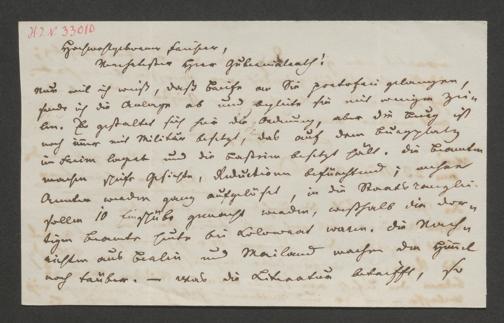 H.I.N. 33010
Hochwohlgeborner Freiherr,
Verehrtester Herr Gubernialrath!
Nur weil ich weiß, daß Briefe an Sie portofrei gelangen,
sende ich die Anlage ab und begleite sie mit wenigen Zei-
len. Es gestaltet sich hier die Ordnung, aber die Burg ist
noch immer mit Militär besetzt, das auf dem Burgplatz
im Freien lagert und die Basteien besetzt hält. Die Beamten
machen Gesichter, Reductionen befürchtend; mehrere
Aemter werden ganz aufgelöset, in der Staatskanzlei
sollen 10 gemacht werden, weßhalb die dor-
tigen Beamten heute bei Kolowrat waren. Die Nach-
richten aus Berlin und Mailand machen den Himmel
noch trüber. — Was die Literatur betrifft, so